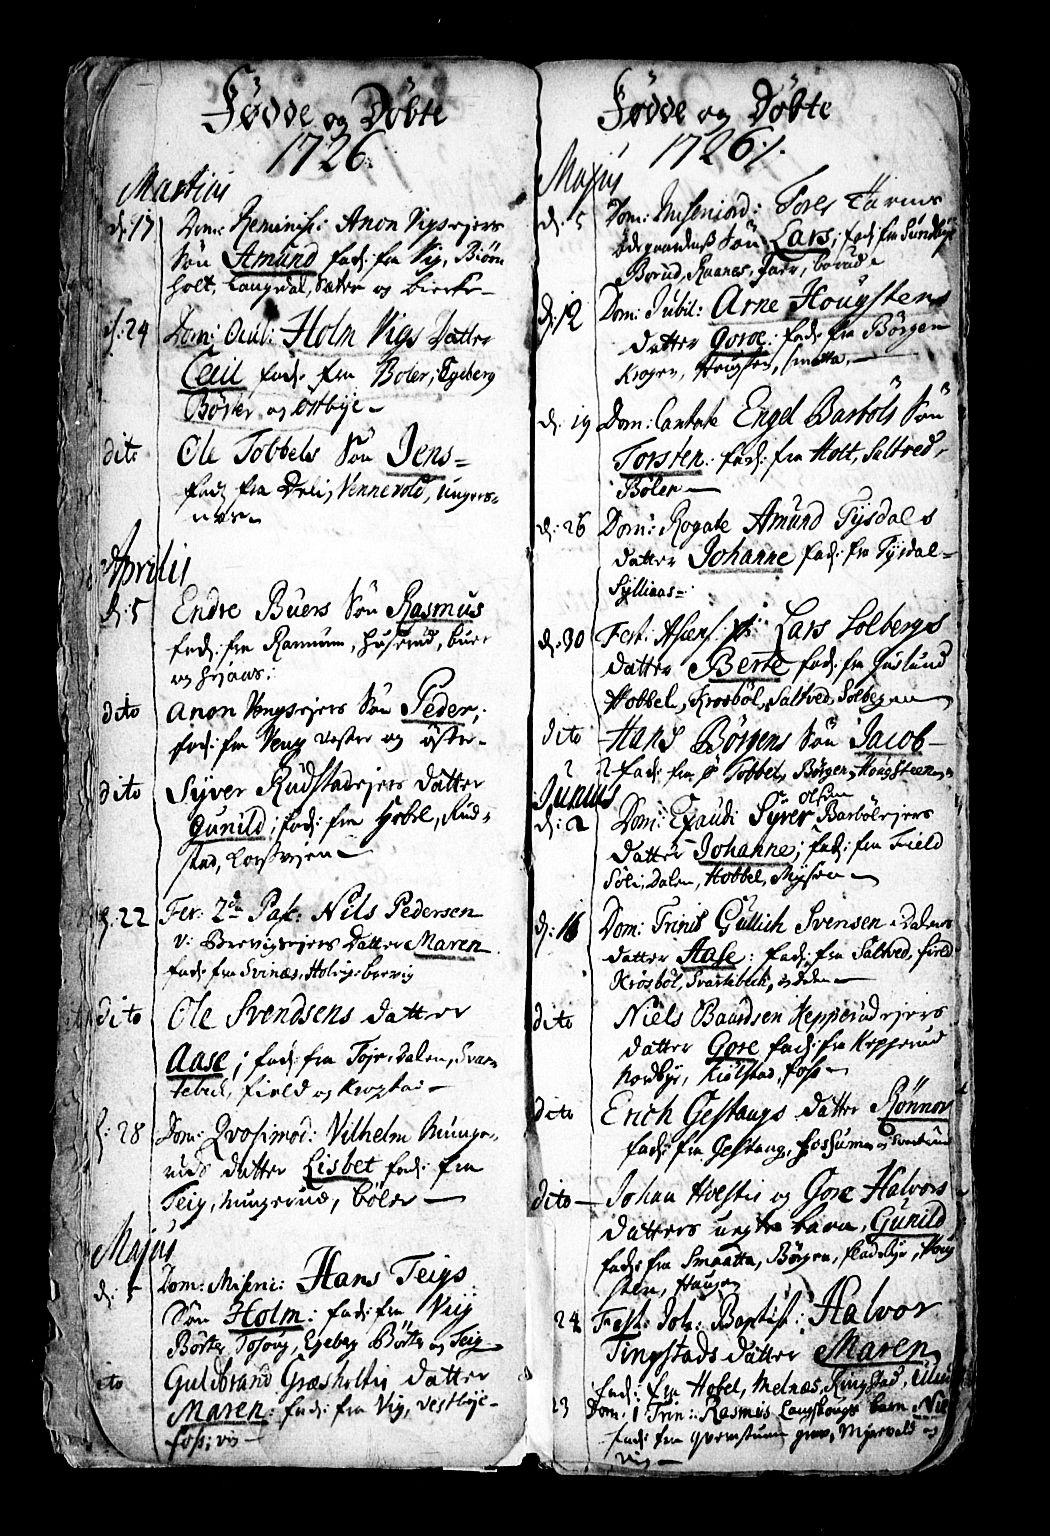 Fødde og Døbte
1726
Martius
d: 17 Dom: Reminis: Anon Vigsejers
Søn Amund fad: fra Vig, Biørn
holt, Langedal, Sæter og
d: 24 Dom: Ocul: Holm Vigs Datter
Cecil fad: fra Boler, Egeberg
Børter og Østbye
dito Ole Tobbels Søn Jens
fad: fra Deli, Vennevold, Ungers-
næs
Aprilis
d: 5 Endre Buers Søn Rasmus
fad: fra Ramum, Huserud, buer
og
dito Anon Vengsejers Søn Peder,
fad: fra Veng Vester og Øster
dito Syver Rudstadejers Datter
Gunild; fad: fra Hobel, Rud-
stad,
d: 22 Fer: 2da Pasc: Nils Pedersen
v: Datter Maren
fad: fra Svinæs,
dito Ole Svendsens datter
Aase; fad: fra Dalen, Svar-
tebeck, field og
d: 28 Dom: Qvasimod: Vilhelm Munge-
ruds datter Lisbet fad: fra
Teig, Mungerud, bøler
Majus
d: 5 Dom: Miseric: Hans Teigs
Søn Holm: fad: fra Vig
Børter, Egeberg Børter og Teig
dito Guldbrand Græsholtis datter
Maren: fad: fra Vig, Vestbye
foss; vig
Fødde og Døbte
1726
Majus
d: 5 Dom: Misericord: Tores
Ødegaardens Søn Lars; fad: fra Sundbye
Borud, Raanes,
d: 12 Dom: Jubil: Arne Hougstens
datter Goroe: fad: fra Børgen
Kroger, Hougsten, Smatta,
d: 19 Dom: Cantate Engel Barbøls Søn
Torsten: fad: fra Holt, Saltved,
Bøler
d: 26 Dom: Rogate Amund Tysdals
datter Johanne fad: fra Tysdal
Syllinaas
d: 30 Fest: Ascens: Lars Solbergs
datter Berte, fad: fra Haslund
Hobbel, Krosbøl, Saltved, Solbergen
dito Hans Børgens Søn Jacob
fad: fra Tobbel, Børgen, Hougsteen
Junius
Olsen
d: 2 Dom: Exaudi Syver Barbølejers
datter Johanne; fad: fra Field
Soli, Dalen, Hobbel, Mysen
d: 16 Dom: Trinit Gullich Svensen Dalens
datter Aase: fad: fra Saltved, field
Krosbøl, Svartebeck,
dito Niels Baardsen Kepperudejers
datter Gore fad: fra Kepperud
Nordbye, Kiølstad, foss
dito Erich Gestangs datter Rønnov
fad: fra Gestang, Fossum
dito Johan Holstis og Gore Halvors
datters uegte barn, Gunild
fad: fra Smaatta, Børgen, fladebye, Houg
sten, Haugen
24 Fest: Joh: Baptist: Halvor
Tingstads datter Maren
fad: fra Hobel, Melnæs, Ringstad,
23 Dom: 1 Trin: Rasmus barn
fad: fra Qvernstuen grav, Myrvold og
vig